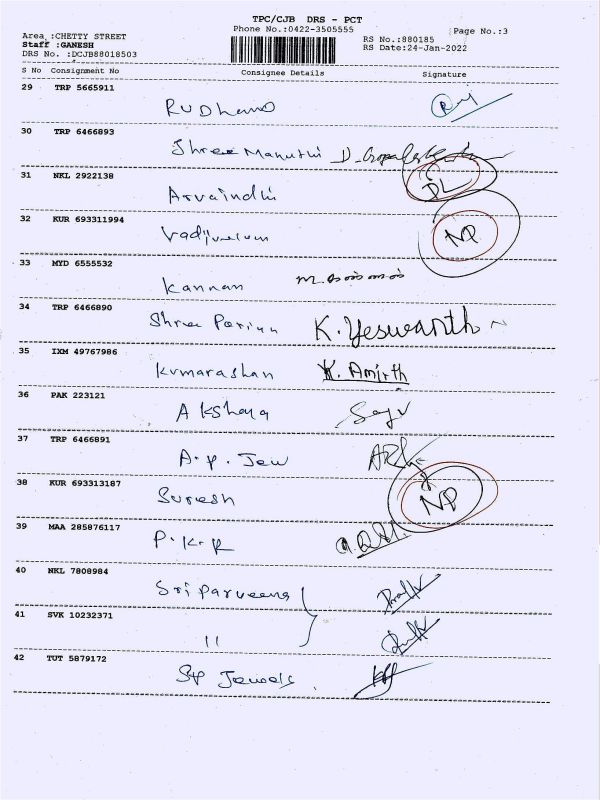 TPC/CJB DRS - PCT
Phone No.:0422-3505555
Page No.:3
Area :CHETTY STREET
RS No.:880185
Staff :GANESH
RS Date:24-Jan-2022
DRS No. :DCJB88018503
S No Consignment No Consignee Details Signature
29 TRP 5665911
30 TRP 6466893
Shree Maruthi
31 NKL 2922138
DL
Arvaindhi
32 KUR 693311994
NP
Vadivelum
33 MYD 6555532
Kannan
34 TRP 6466890
Shree K. Yeswanth
35 IXM 49767986
Kumarashan K. Amirth
36 PAK 223121
Akshara
37 TRP 6466891
A.P. Jew
38 KUR 693313187
Suresh NP
39 MAA 285876117
P.K.R
40 NKL 7808984
Sri Parveena
41 SVK 10232371
11
42 TUT 5879172
Jewels